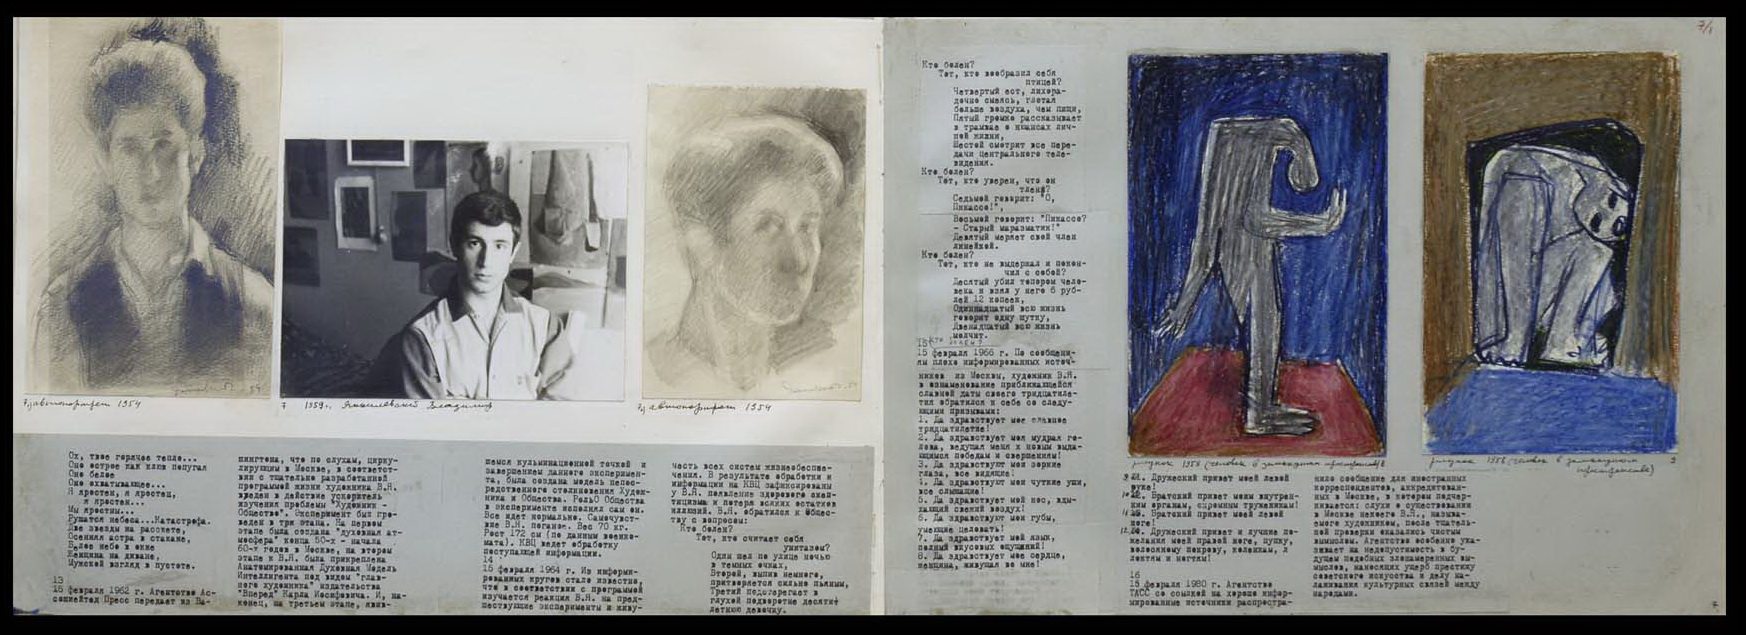 7) автопортрет 1954
7 1959г. Янкилевский Владимир
7) автопортрет 1954
Ох, твое горячее тепло...
Оно острее как клюв попугая
Оно белое
Оно охватывающее...
Я яростен, я яростен,
я яростен...
Мы яростны...
Рушатся небеса...Катастрофа.
Две звезды на рассвете
Осенняя астра в стакане,
Белое небо в окне
Женщина на диване,
Мужской взгляд в пустоте.
13
15 февраля 1962 г. Агентство Ас-
сошиэйтед Пресс передает из Ва-
шингтона, что по слухам, цирку-
лирующим в Москве, в соответст-
вии с тщательно разработанной
программой жизни художника В.Я.
введен в действие ускоритель
изучения проблемы "Художник -
Общество". Эксперимент был про-
веден в три этапа. На первом
этапе была создана "духовная ат-
мосфера" конца 50-х - начала
60-х годов в Москве, на втором
этапе к В.Я. была прикреплена
Анатомированная Духовная Модель
Интеллигента под видом "глав-
ного художника" издательства
"Вперед" Карла Иосифовича. И, на-
конец, на третьем этапе, явив-
шемся кульминационной точкой и
завершением данного эксперимен-
та, была создана модель непос-
редственного столкновения Худож-
ника и Общества. Роль Общества
в эксперименте исполнял сам он.
Все идет нормально. Самочувст-
вие В.Я. поганое. Вес 70 кг.
Рост 172 см (по данным военко-
мата). КВЦ ведет обработку
поступающей информации.
14
15 февраля 1964 г. Из информи-
рованных кругов стало известно,
что в соответствии с программой
изучается реакция В.Я. на пред-
шествующие эксперименты и живу-
честь всех систем жизнеобеспе-
чения. В результате обработки
информации на КВЦ зафиксированы
у В.Я. появление здорового скеп-
тицизма и потеря всяких остатков
иллюзий. В.Я. обратился к Общес-
тву с вопросом:
Кто болен?
Тот, кто считает себя
унитазом?
Один шел по улице ночью
в темных очках,
Второй, выпив немного,
притворяется сильно пьяным,
Третий подстерегает в
глухой подворотне десяти
летнюю девочку.
7/1
Кто болен?
Тот, кто вообразил себя
птицей?
Четвертый ест, лихора-
дочно смеясь, глотая
больше воздуха, чем пищи,
Пятый громко рассказывает
в трамвае о нюансах лич-
ной жизни,
Шестой смотрит все пере-
дачи центрального теле-
видения.
Кто болен?
Тот, кто уверен, что он
гений?
Седьмой говорит: "О,
Пикассо!",
Восьмой говорит: "Пикассо?
- Старый маразматик!"
Девятый меряет свой член
линейкой.
Кто болен?
Тот, кто не выдержал и покон-
чил с собой?
Десятый убил топором чело-
века и взял у него 6 руб-
лей 12 копеек,
Одиннадцатый всю жизнь
говорит одну шутку,
Двенадцатый всю жизнь
молчит.
15 Кто болен?
15 февраля 1966 г. По сообщени-
ям плохо информированных источ-
ников из Москвы, художник В.Я.
в ознаменование приближающейся
славной даты своего тридцатиле-
тия обратился к себе со следу-
ющими призывами:
1. Да здравствует мое славное
тридцатилетие!
2. Да здравствует моя мудрая го-
лова, ведущая меня к новым выда-
ющимся победам и свершениям!
3. Да здравствуют мои зоркие
глаза, все видящие!
4. Да здравствуют мои чуткие уши,
все слышащие!
5. Да здравствует мой нос, вды-
хающий свежий воздух!
6. Да здравствуют мои губы,
умеющие целовать!
7. Да здравствует мой язык,
полный вкусовых ощущений!
8. Да здравствует мое сердце,
женщина, живущая во мне!
рисунок 1958 (человек в замкнутом пространстве)
рисунок 1958 (человек в замкнутом
пространстве)
9. Дружеский привет моей левой
руке!
10. Братский привет моим внутрен-
ним органам, скромным труженикам!
11. Братский привет моей левой
ноге!
12. Дружеский привет и лучшие по-
желания моей правой ноге, пупку,
волосяному покрову, коленкам, л
локтям и ногтям!
16
15 февраля 1980 г. Агентство
ТАСС со ссылкой на хорошо инфор-
мированные источники распростра-
нило сообщение для иностранных
корреспондентов, аккредитован-
ных в Москве, в котором подчер-
кивается: слухи о существовании
в Москве некоего В.Я., называ-
емого художником, после тщатель-
ной проверки оказались чистым
вымыслом. Агентство особенно ука-
зывает на недопустимость в бу-
дущем подобных злонамеренных вы-
мыслов, наносящих ущерб престижу
советского искусства и делу на-
лаживания культурных связей между
народами.
7